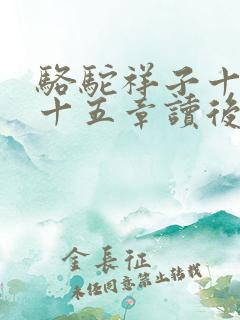 駱駝祥子十
十五章讀後
金長征
未經同意禁止轉載